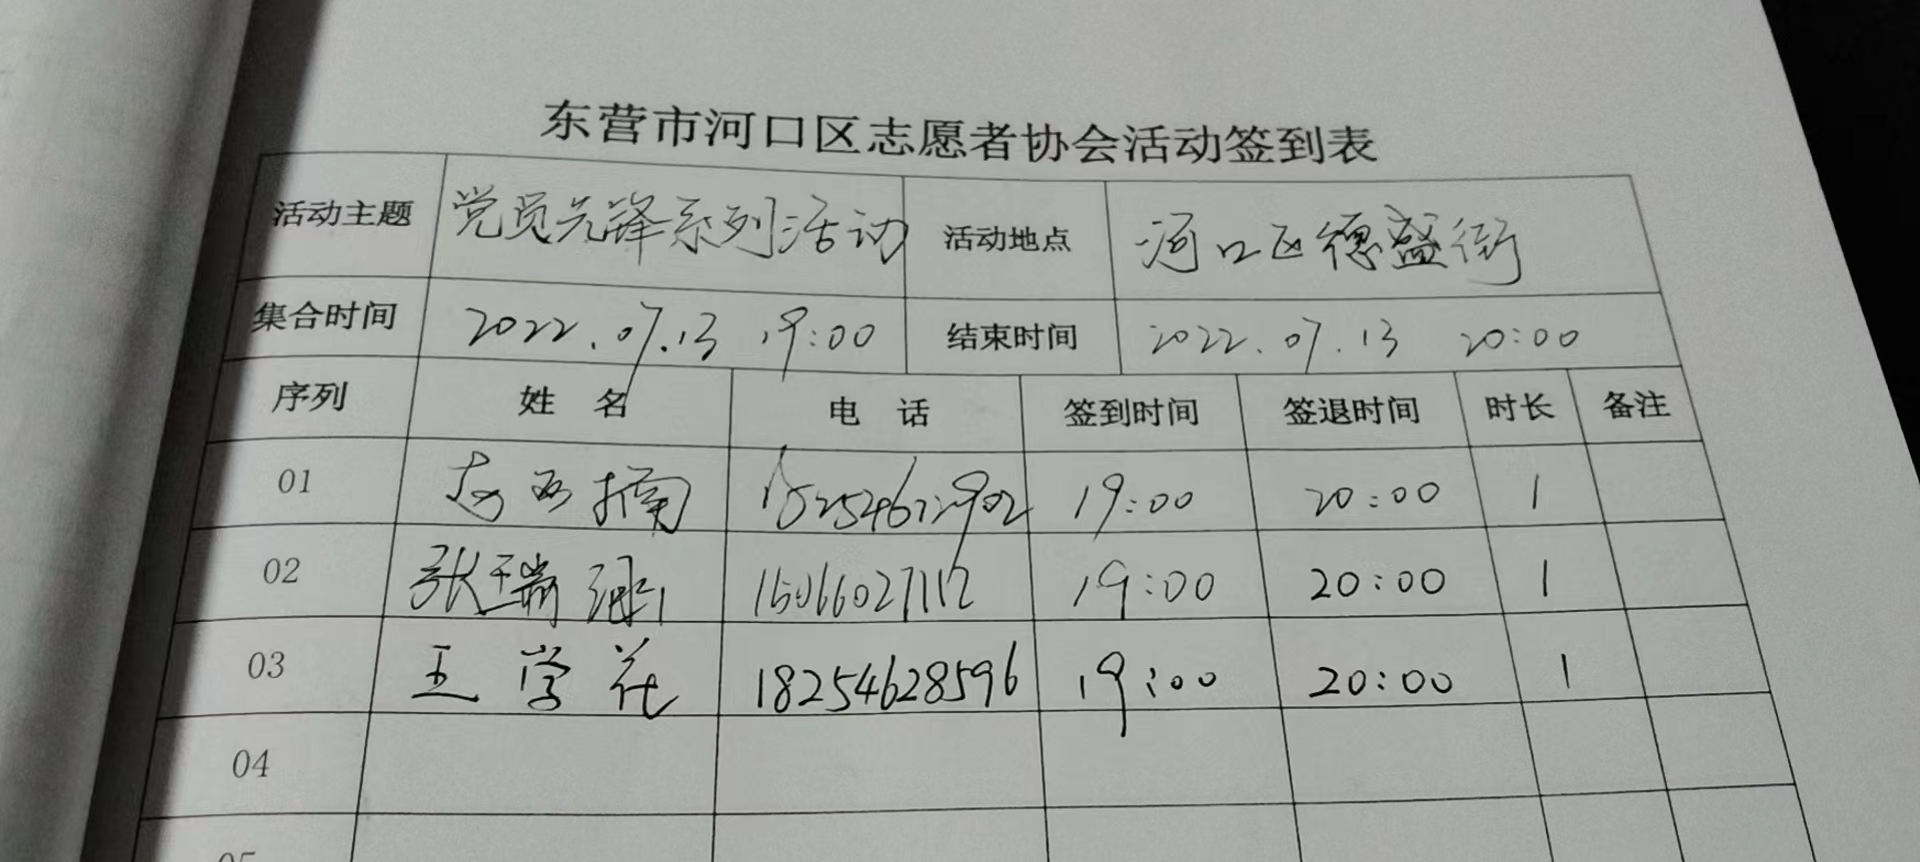 东营市河口区志愿者协会活动签到表
活动主题 党员先锋系列活动 活动地点 河口区德盛街
集合时间 2022.07.13 19:00 结束时间 2022.07.13 20:00
序列 姓名 电话 签到时间 签退时间 时长 备注
01 19:00 20:00 1
02 张瑞 15066027112 19:00 20:00 1
03 王学花 18254628596 19:00 20:00 1
04
05